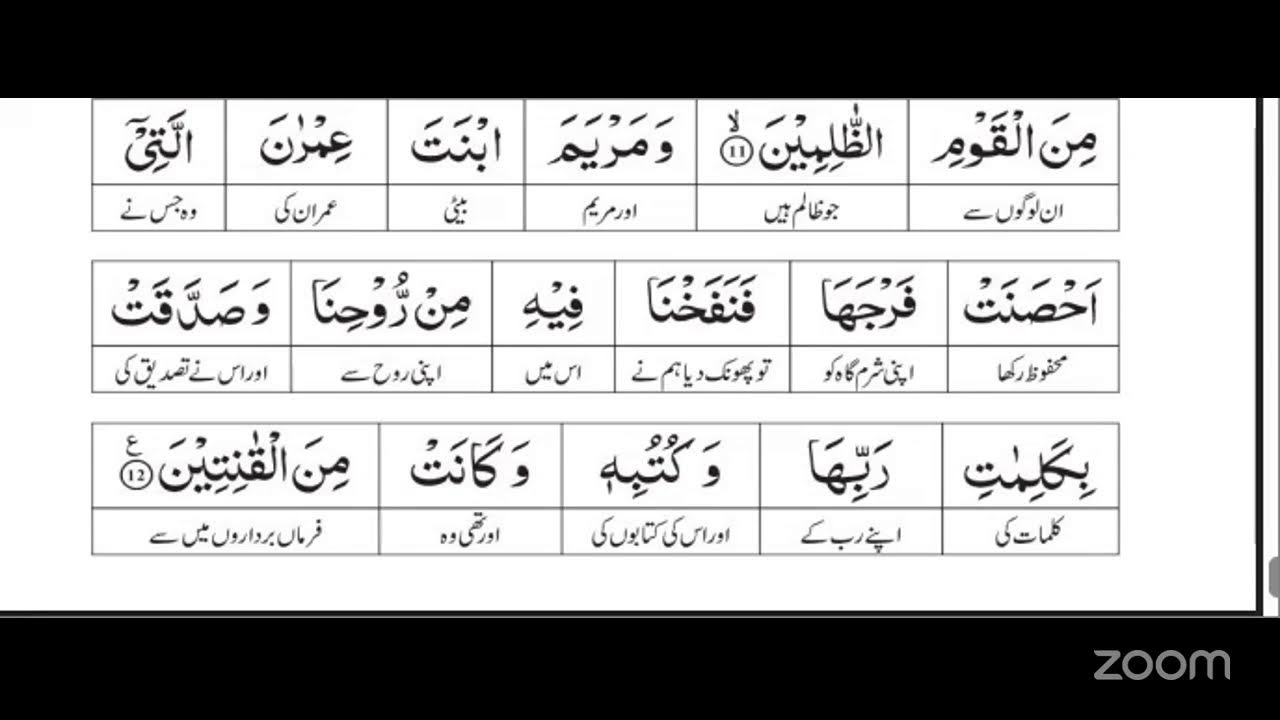 مِنَ الْقَوْمِ الظّٰلِمِيْنَ ۙ﴿11﴾ وَ مَرْيَمَ ابْنَتَ عِمْرٰنَ الَّتِيْۤ
ان لوگوں سے جو ظالم ہیں اور مریم بیٹی عمران کی وہ جس نے
اَحْصَنَتْ فَرْجَهَا فَنَفَخْنَا فِيْهِ مِنْ رُّوْحِنَا وَ صَدَّقَتْ
محفوظ رکھا اپنی شرم گاہ کو تو پھونک دیا ہم نے اس میں اپنی روح سے اور اس نے تصدیق کی
بِكَلِمٰتِ رَبِّهَا وَ كُتُبِهٖ وَ كَانَتْ مِنَ الْقٰنِتِيْنَ ﴿12﴾ ع
کلمات کی اپنے رب کے اور اس کی کتابوں کی اور تھی وہ فرماں برداروں میں سے
zoom